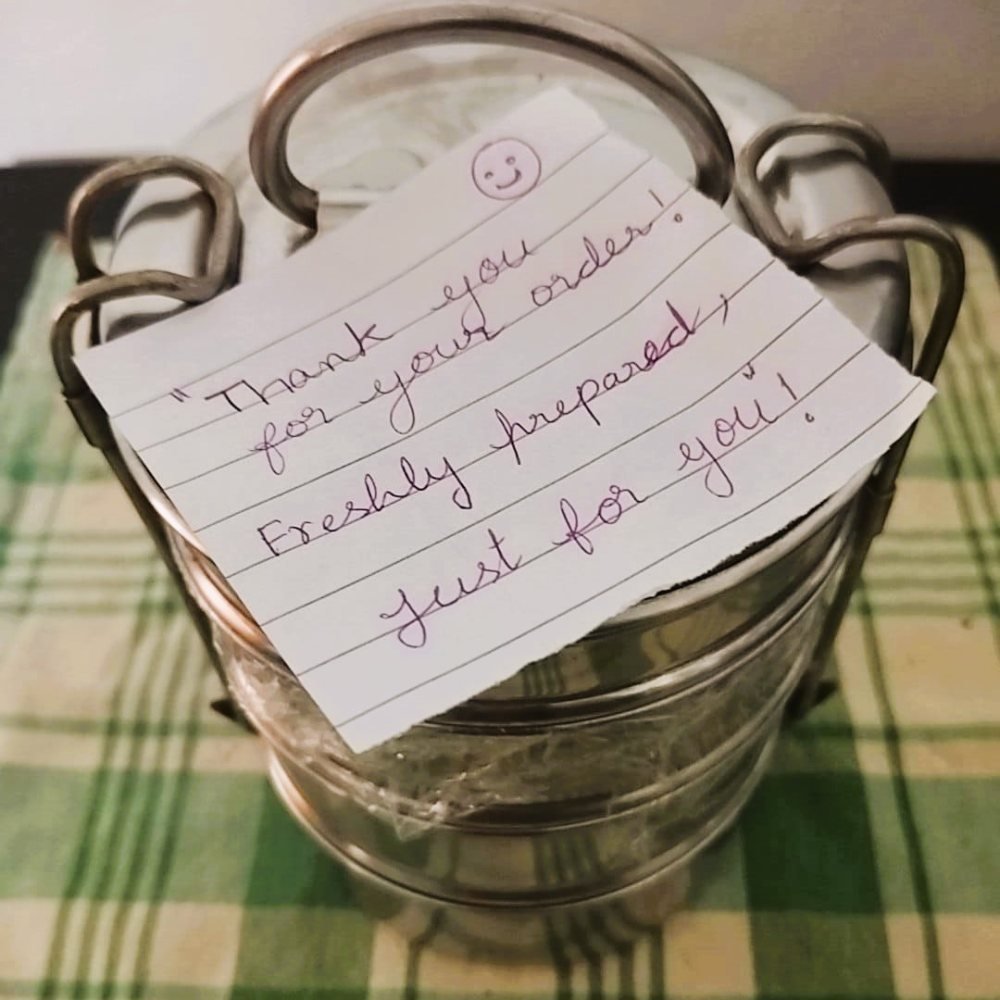 "Thank you
for your order!
Freshly prepared,
just for you"!